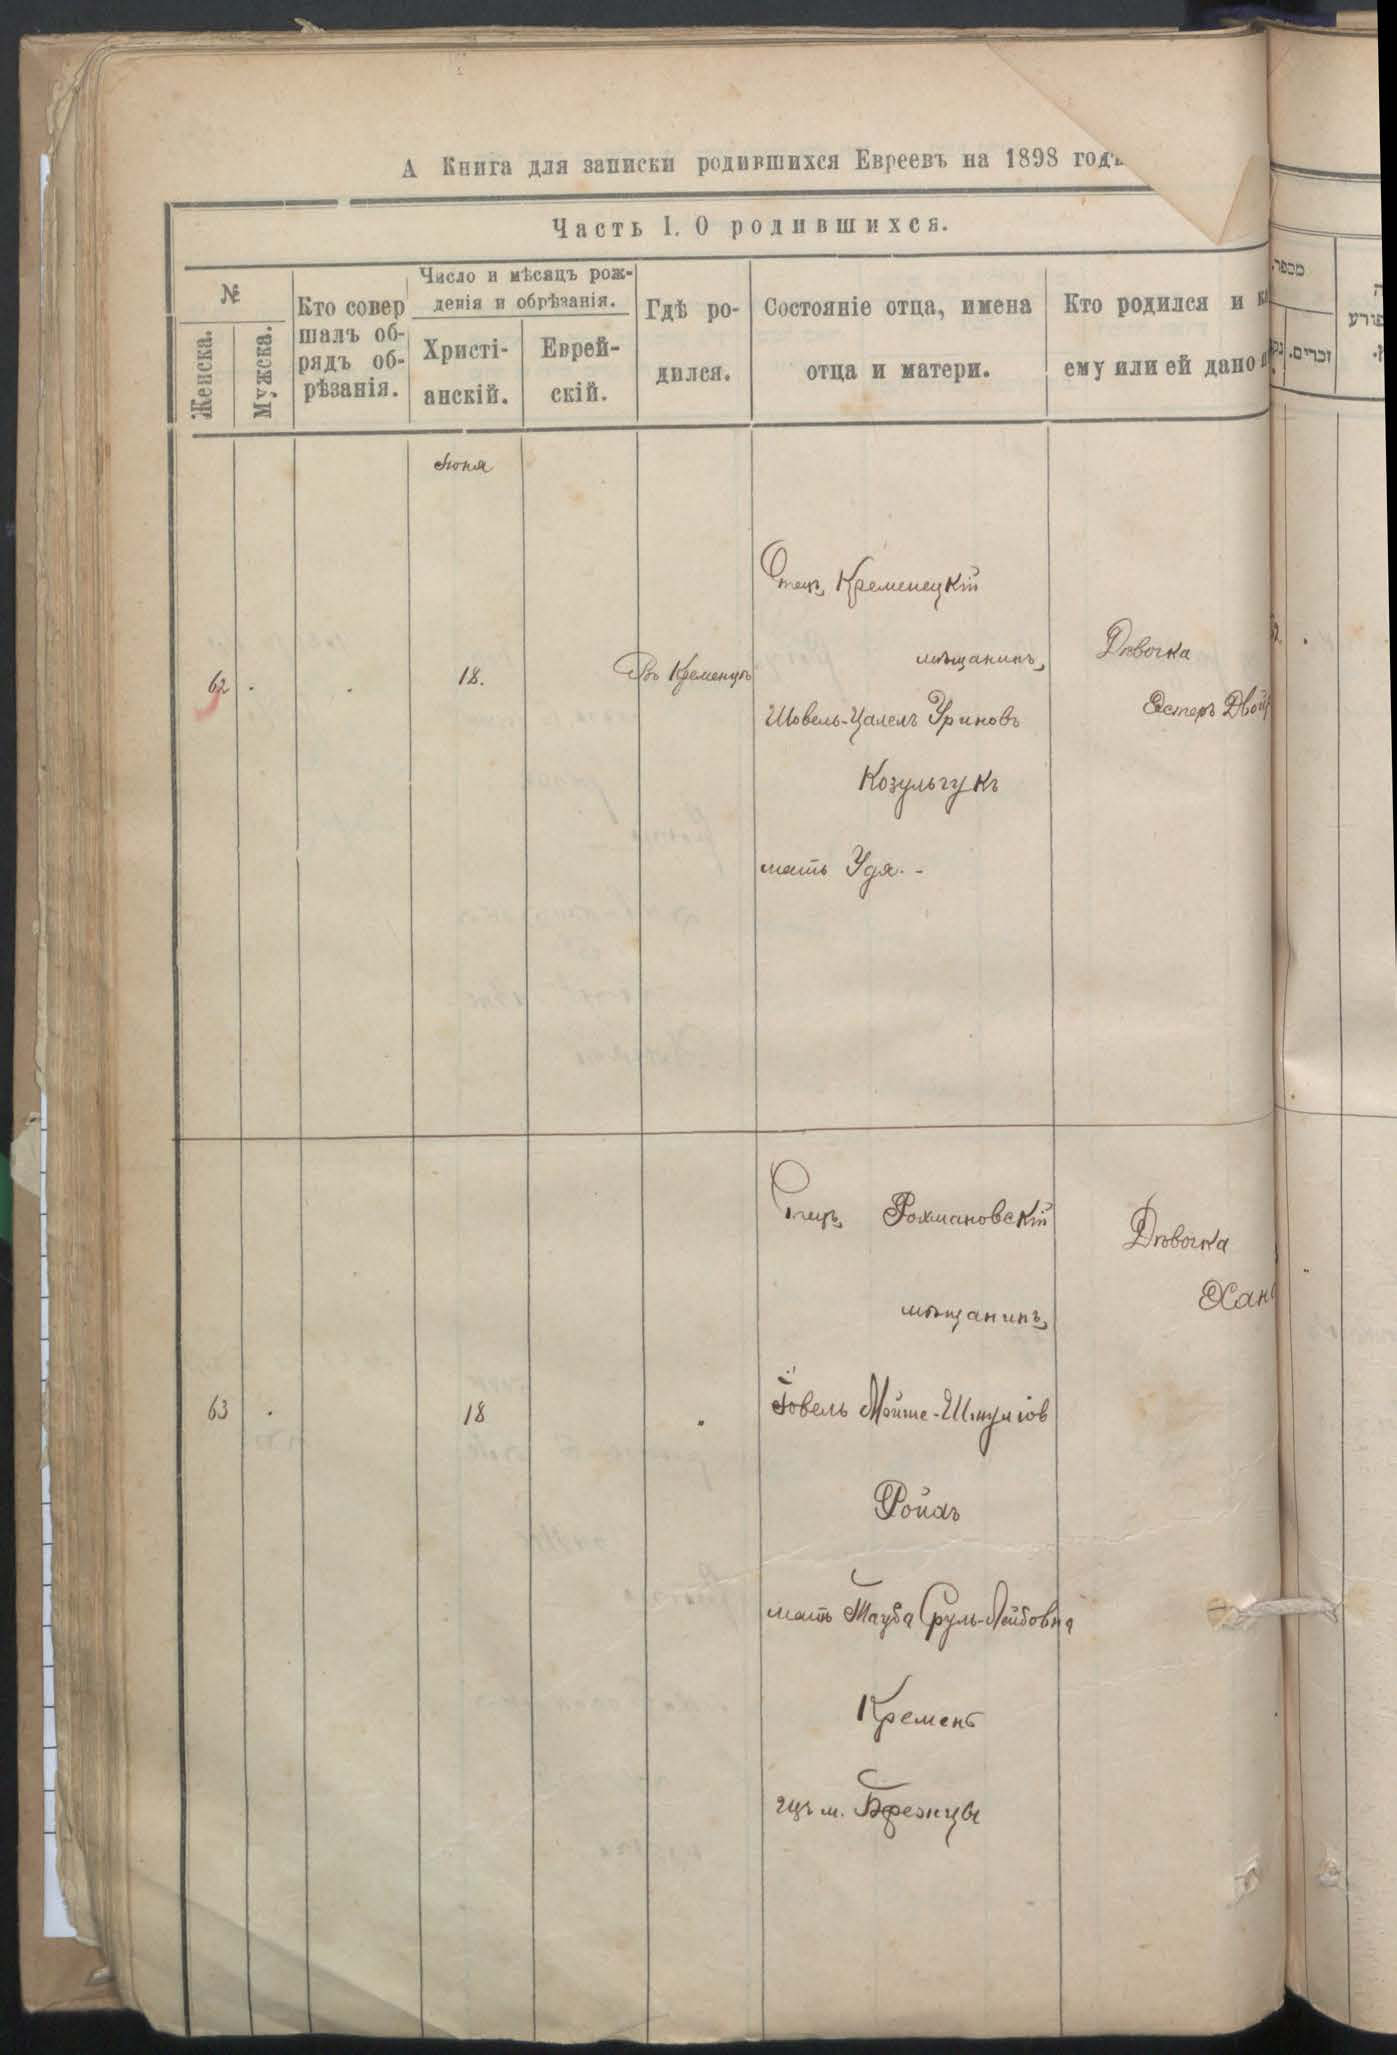 А Книга для записки родившихся Евреевъ на 1898 годъ
Часть I. О родившихся.
№
Женска.
Мужска.
Кто совер
шалъ об-
рядъ об-
рѣзанія.
Число и мѣсяцъ рож-
денія и обрѣзанія.
Христі-
анскій.
Еврей-
скій.
Гдѣ ро-
дился.
Состояніе отца, имена
отца и матери.
Кто родился и
ему или ей дано
מספר.
זכרים.
Іюня
62
18.
Въ Кременцѣ
Отецъ Кременецкій
мѣщанинъ
Шовель-Цалель Уриновъ
Козульчукъ
мать Удя.-
Дѣвочка
Эстеръ
63
18
Отецъ Рохмановскій
мѣщанинъ
Іовель Мойше-Шмуліов
Ройхъ
мать Тауба Сруль-Лейбовна
Кремен
м. Бережцы
Дѣвочка